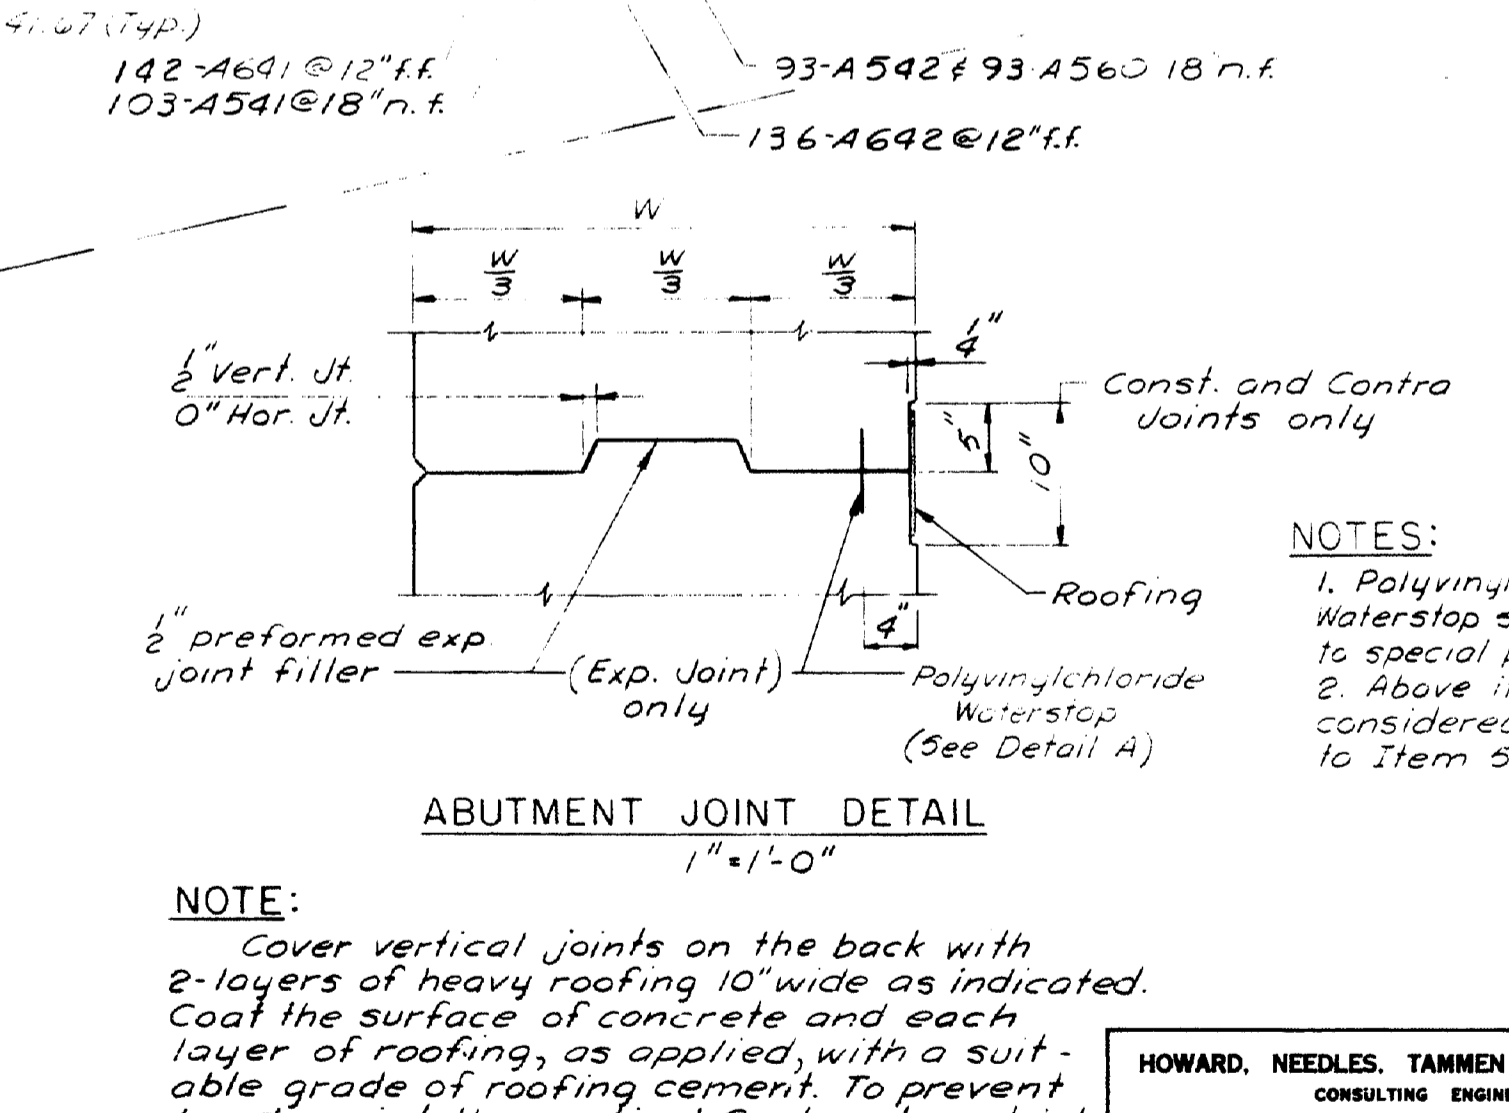 41.67 (Typ.)
142-A641@12"f.f.
103-A541@18"n.f.
93-A542 & 93-A560 18"n.f.
136-A642@12"f.f.
W
W/3 W/3 W/3
1/4"
1/2" Vert. Jt.
0" Hor. Jt.
Const. and Contra
Joints only
5"
10"
Roofing
4"
1/2" preformed exp.
joint filler
(Exp. Joint)
only
Polyvinylchloride
Waterstop
(See Detail A)
NOTES:
1. Polyviny
Waterstop
to special
2. Above
considered
to Item 5
ABUTMENT JOINT DETAIL
1"=1'-0"
NOTE:
Cover vertical joints on the back with
2-layers of heavy roofing 10" wide as indicated.
Coat the surface of concrete and each
layer of roofing, as applied, with a suit-
able grade of roofing cement. To prevent
HOWARD, NEEDLES, TAMMEN
CONSULTING ENGIN